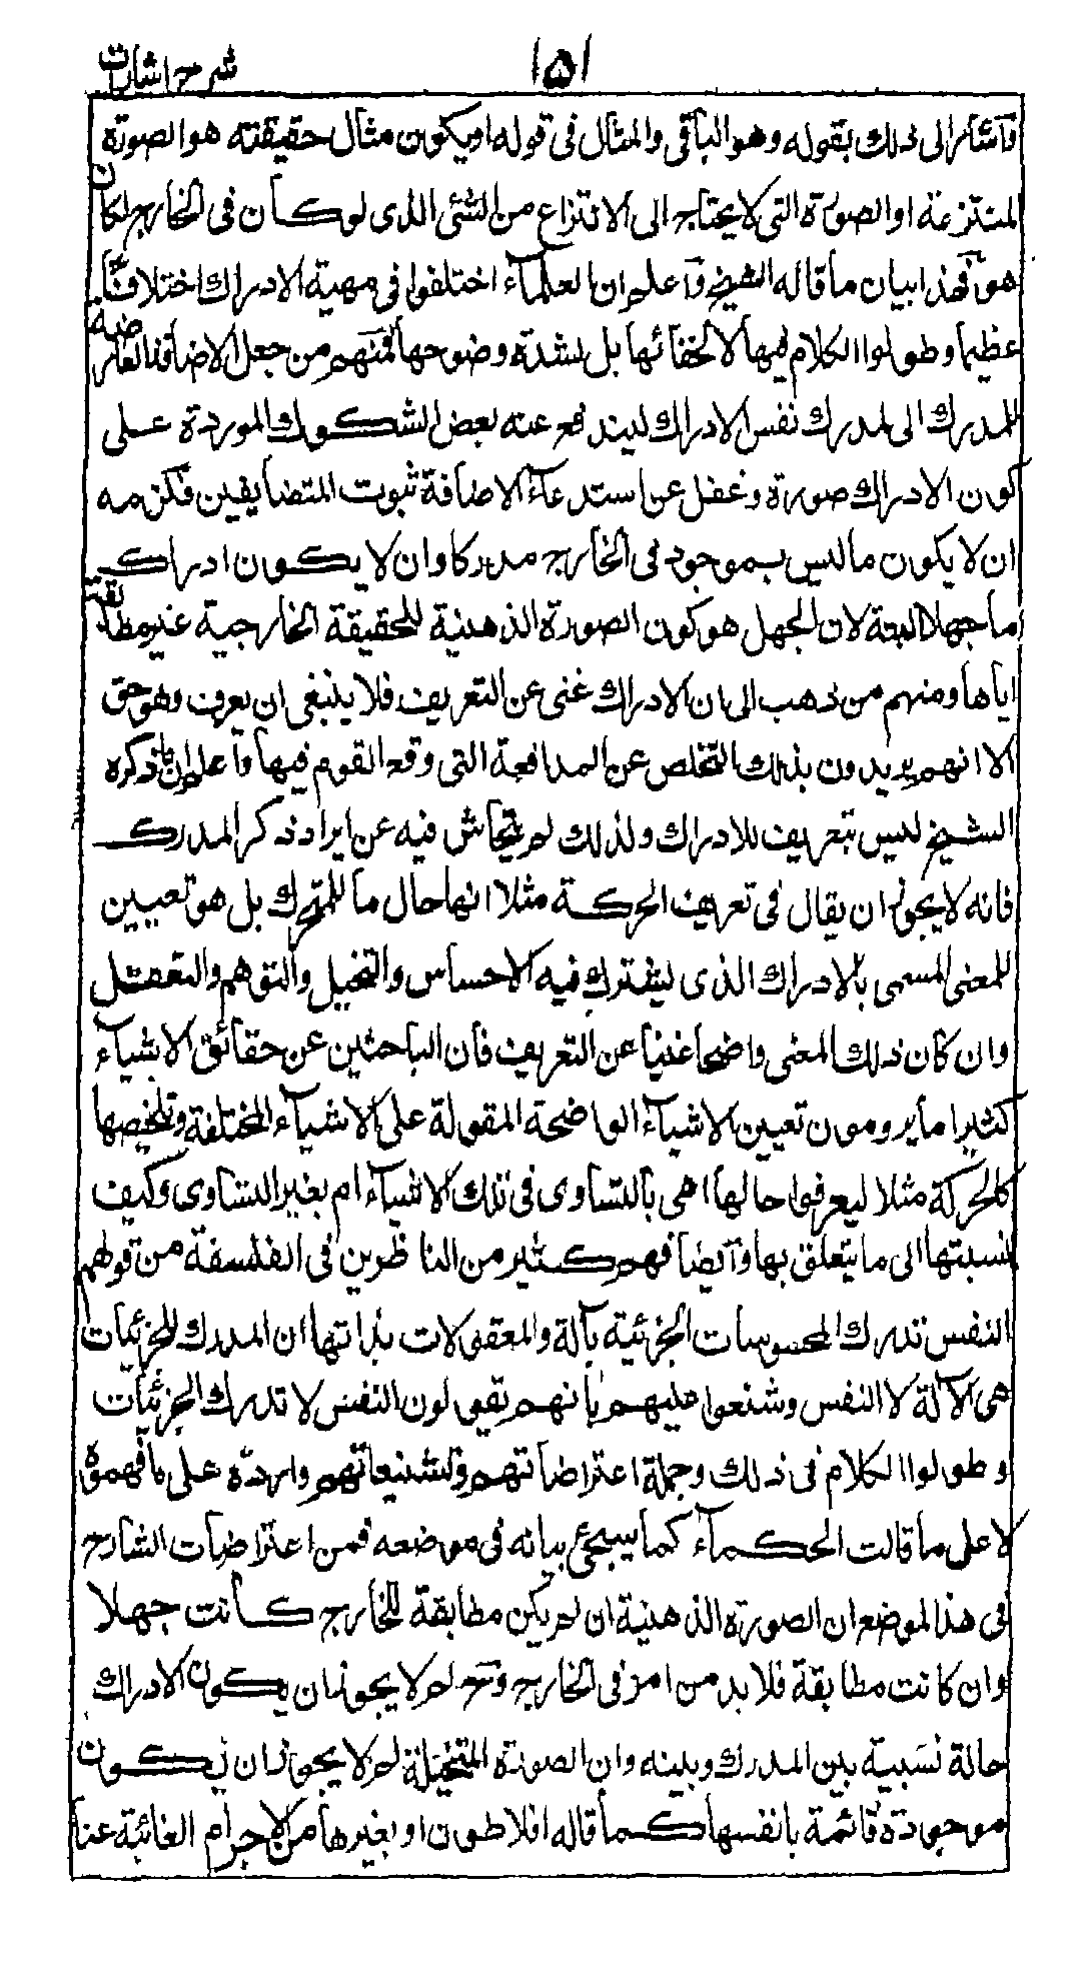 شرح اشارات
١٥١
فأشار الى ذلك بقوله وهو الباقى والمثال فى قوله او يكون مثال حقيقته هو الصورة
المنتزعة او الصورة التى لا يحتاج الى الانتزاع من الشئ الذى لو كان فى الخارج لكان
هو فهذا بيان ما قاله الشيخ وآعلم ان العلمآء اختلفوا فى مهية الادراك اختلافًا
عظيما وطولوا الكلام فيها لا لخفائها بل لشدة وضوحها فمنهم من جعل الاضافة العارضة
للمدرك الى المدرك نفس الادراك ليندفع عنه بعض الشكوك الموردة على
كون الادراك صورة وغفل عن استدعآء الاضافة ثبوت المتضايفين فلزمه
ان لا يكون ما ليس بموجود فى الخارج مدركا وان لا يكون ادراك
ما جهلا البتة لان الجهل هو كون الصورة الذهنية للحقيقة الخارجية غير مطابقة
اياها ومنهم من ذهب الى ان الادراك غنى عن التعريف فلا ينبغى ان يعرف وهو حق
الا انهم يريدون بذلك التخلص عن المدافعة التى وقع القوم فيها وآعلم ان ما ذكره
الشيخ ليس بتعريف للادراك ولذلك لم يتحاش فيه عن ايراد ذكر المدرك
فانه لا يجوز ان يقال فى تعريف الحركة مثلا انها حال ما للمتحرك بل هو تعيين
للمعنى المسمى بالادراك الذى يشترك فيه الاحساس والتخيل والتوهم والتعقل
وان كان ذلك المعنى واضحا غنيا عن التعريف فان الباحثين عن حقائق الاشيآء
كثيرا ما يرومون تعيين الاشيآء الواضحة المقولة على الاشيآء المختلفة وتلخيصها
كالحركة مثلا ليعرفوا حالها اهى بالتساوى فى تلك الاشيآء ام بغير التساوى وكيف
نسبتها الى ما يتعلق بها وآيضا فهم كثير من الناظرين فى الفلسفة من قولهم
النفس تدرك المحسوسات الجزئية بآلة والمعقولات بذاتها ان المدرك للجزئيات
هى الآلة لا النفس وشنعوا عليهم بانهم يقولون النفس لا تدرك الجزئيات
وطولوا الكلام فى ذلك وجملة اعتراضاتهم وتشنيعاتهم واردة على ما فهموه
لا على ما قالت الحكمآء كما سيجئ بيانه فى موضعه فمن اعتراضات الشارح
فى هذا الموضع ان الصورة الذهنية ان لم يكن مطابقة للخارج كانت جهلا
وان كانت مطابقة فلا بد من امر فى الخارج وح لم لا يجوز ان يكون الادراك
حالة نسبية بين المدرك وبينه وان الصورة المتخيلة لم لا يجوز ان يكون
موجودة قائمة بانفسها كما قاله افلاطون او بغيرها من الاجرام الغائبة عنا